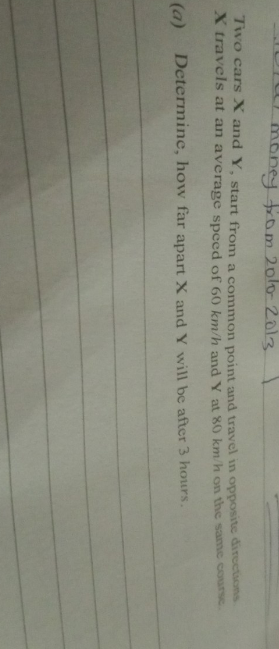 money from 2010 2013
Two cars X and Y, start from a common point and travel in opposite directions.
X travels at an average speed of 60 km/h and Y at 80 km/h on the same course.
(a) Determine, how far apart X and Y will be after 3 hours.